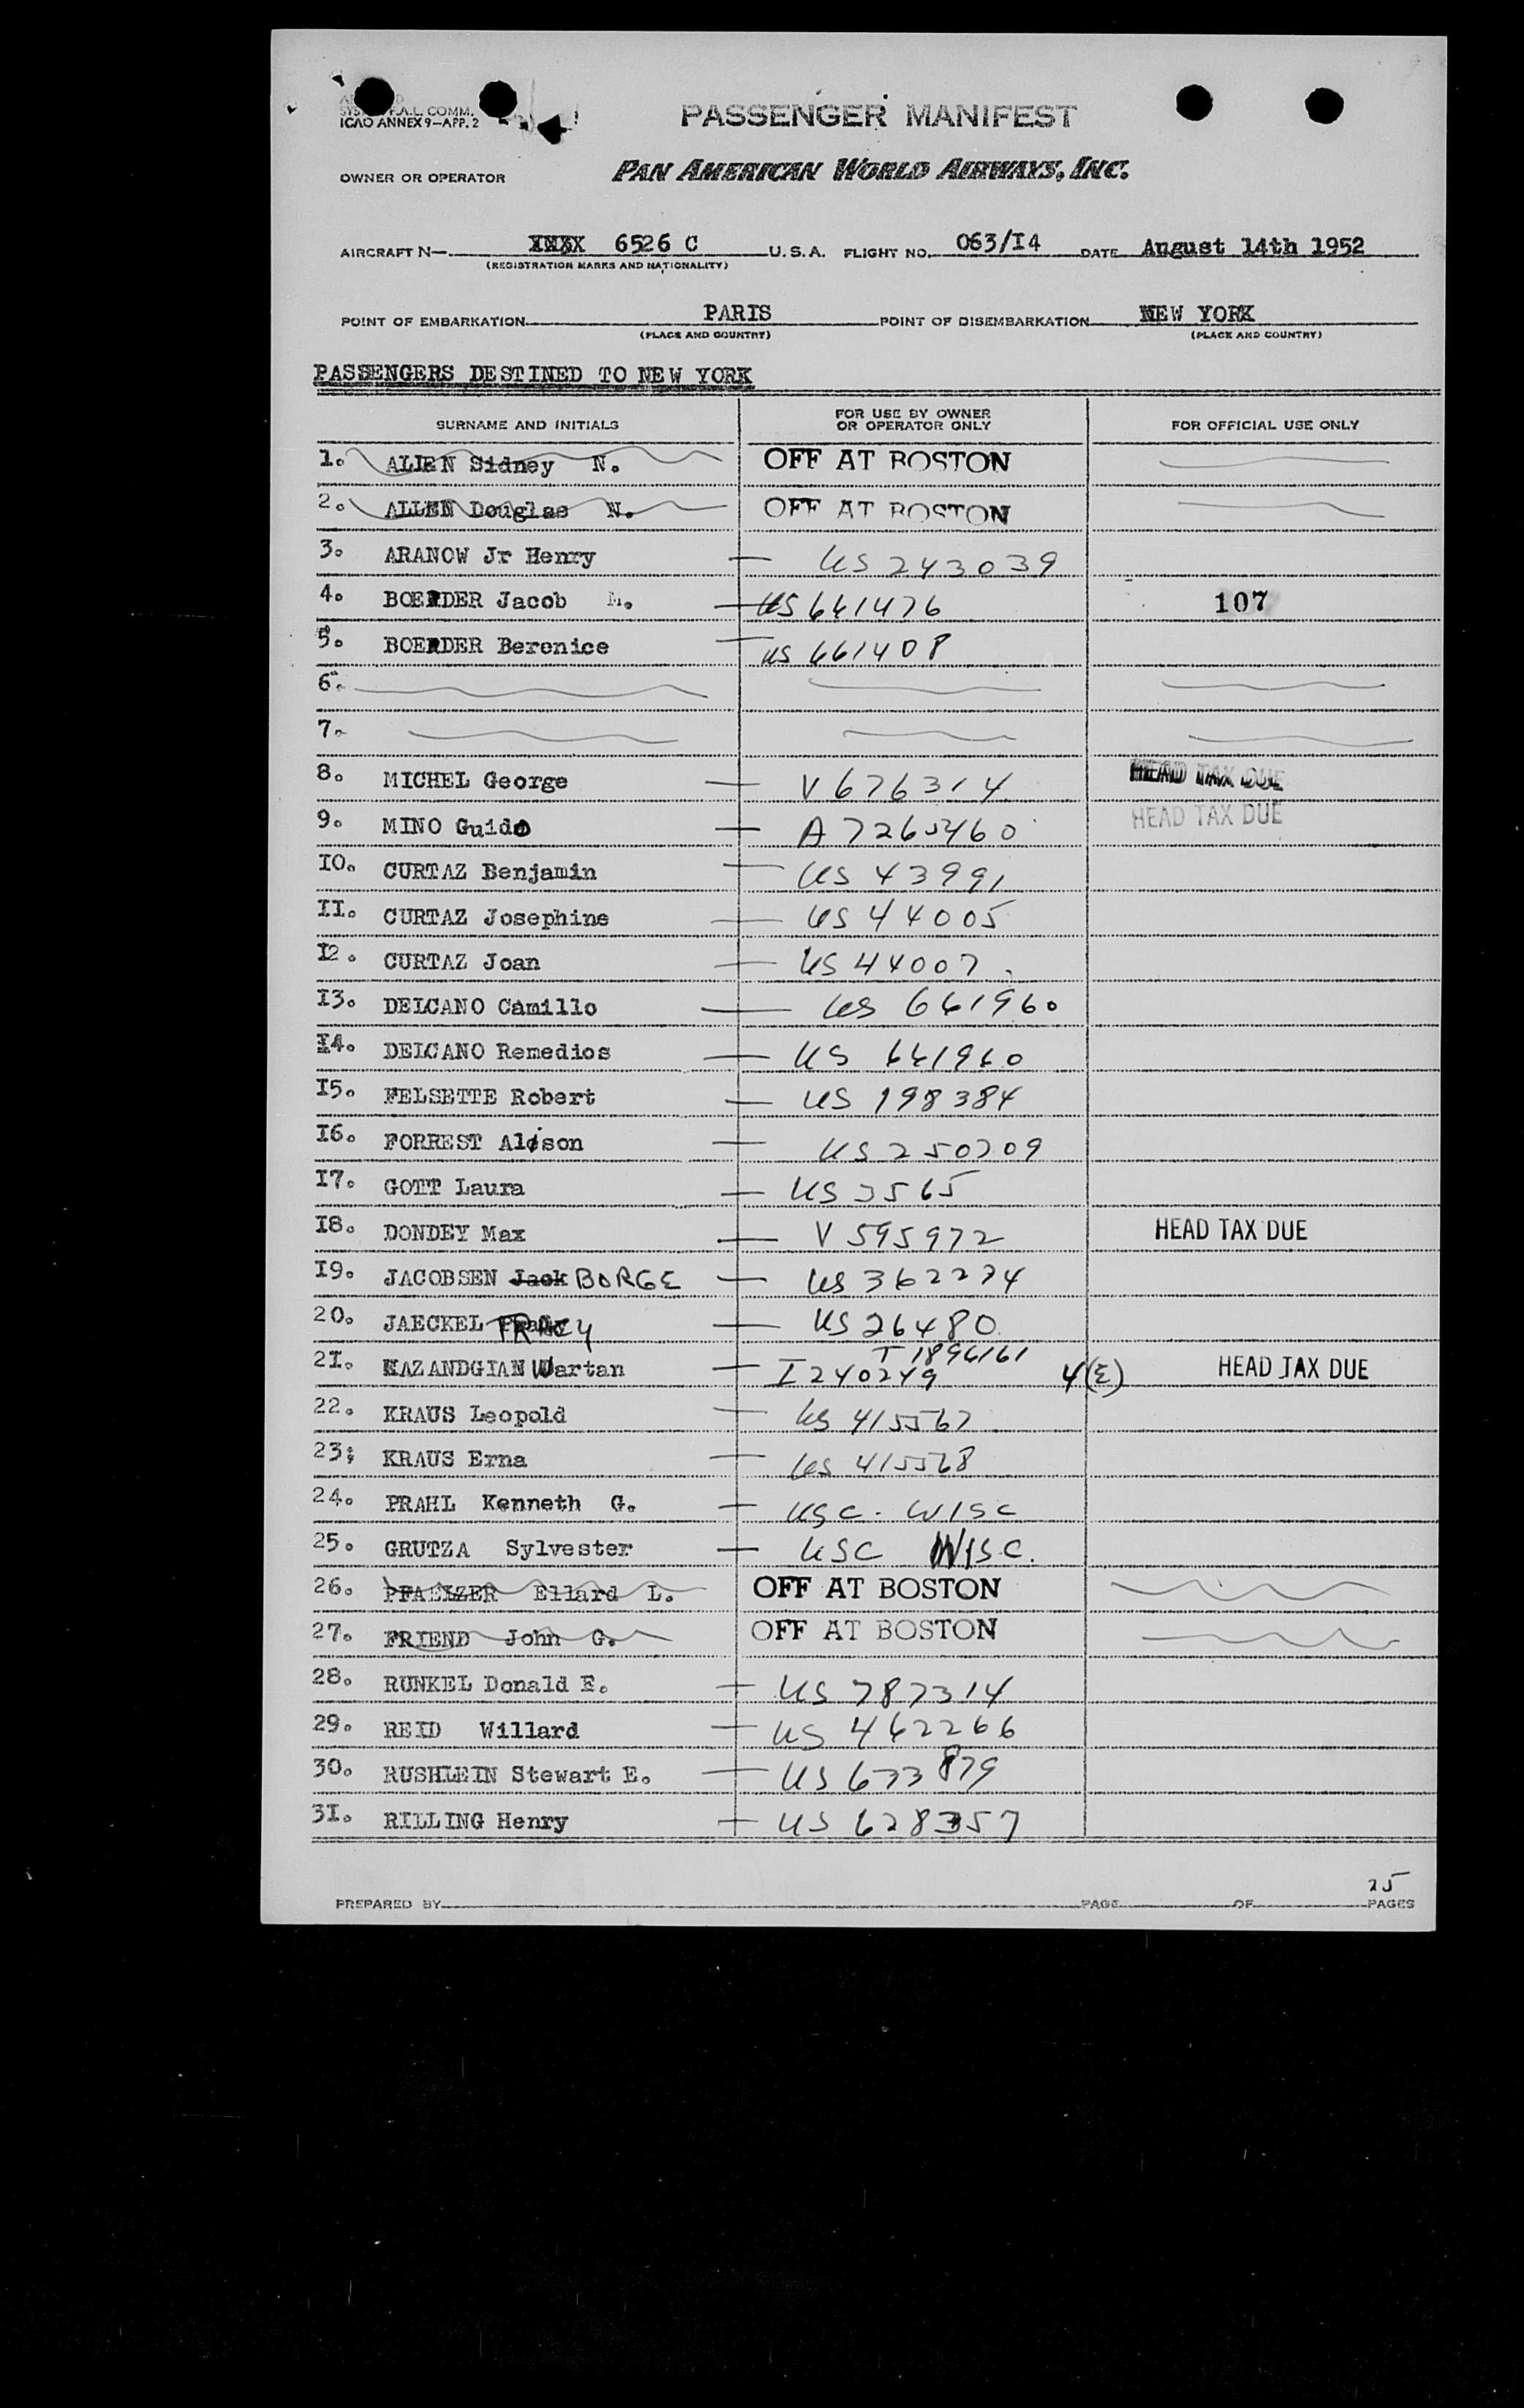 SYS F.A.L. COMM.
ICAO ANNEX 9—APP. 2
PASSENGER MANIFEST
OWNER OR OPERATOR PAN AMERICAN WORLD AIRWAYS, INC.
AIRCRAFT N— 6526 C U.S.A. FLIGHT NO. 063/I4 DATE August 14th 1952
(REGISTRATION MARKS AND NATIONALITY)
POINT OF EMBARKATION PARIS POINT OF DISEMBARKATION NEW YORK
(PLACE AND COUNTRY) (PLACE AND COUNTRY)
PASSENGERS DESTINED TO NEW YORK
SURNAME AND INITIALS FOR USE BY OWNER OR OPERATOR ONLY FOR OFFICIAL USE ONLY
1. ALLEN Sidney N. OFF AT BOSTON
2. ALLEN Douglas N. OFF AT BOSTON
3. ARANOW Jr Henry — US 243039
4. BOERDER Jacob M. — US 661476 107
5. BOERDER Berenice — US 661408
6.
7.
8. MICHEL George — V 676314 HEAD TAX DUE
9. MINO Guido — A 7265460 HEAD TAX DUE
I0. CURTAZ Benjamin — US 43991
II. CURTAZ Josephine — US 44005
I2. CURTAZ Joan — US 44007
I3. DELCANO Camillo — US 661960
I4. DELCANO Remedios — US 661960
I5. FELSETTE Robert — US 198384
I6. FORREST Alison — US 250709
I7. GOTT Laura — US 3565
I8. DONDEY Max — V 595972 HEAD TAX DUE
I9. JACOBSEN Jack BORGE — US 362274
20. JAECKEL TRACY — US 26480
T 1896161
2I. KAZANDGIAN Wartan — I 240249 4(E) HEAD TAX DUE
22. KRAUS Leopold — US 415567
23; KRAUS Erna — US 415568
24. PRAHL Kenneth G. — USC. WISC
25. GRUTZA Sylvester — USC WISC.
26. PFAELZER Ellard L. OFF AT BOSTON
27. FRIEND John G. OFF AT BOSTON
28. RUNKEL Donald E. — US 787314
29. REID Willard — US 462266
30. RUSHLEIN Stewart E. — US 673879
3I. RILLING Henry — US 628357
25
PREPARED BY PAGE OF PAGES